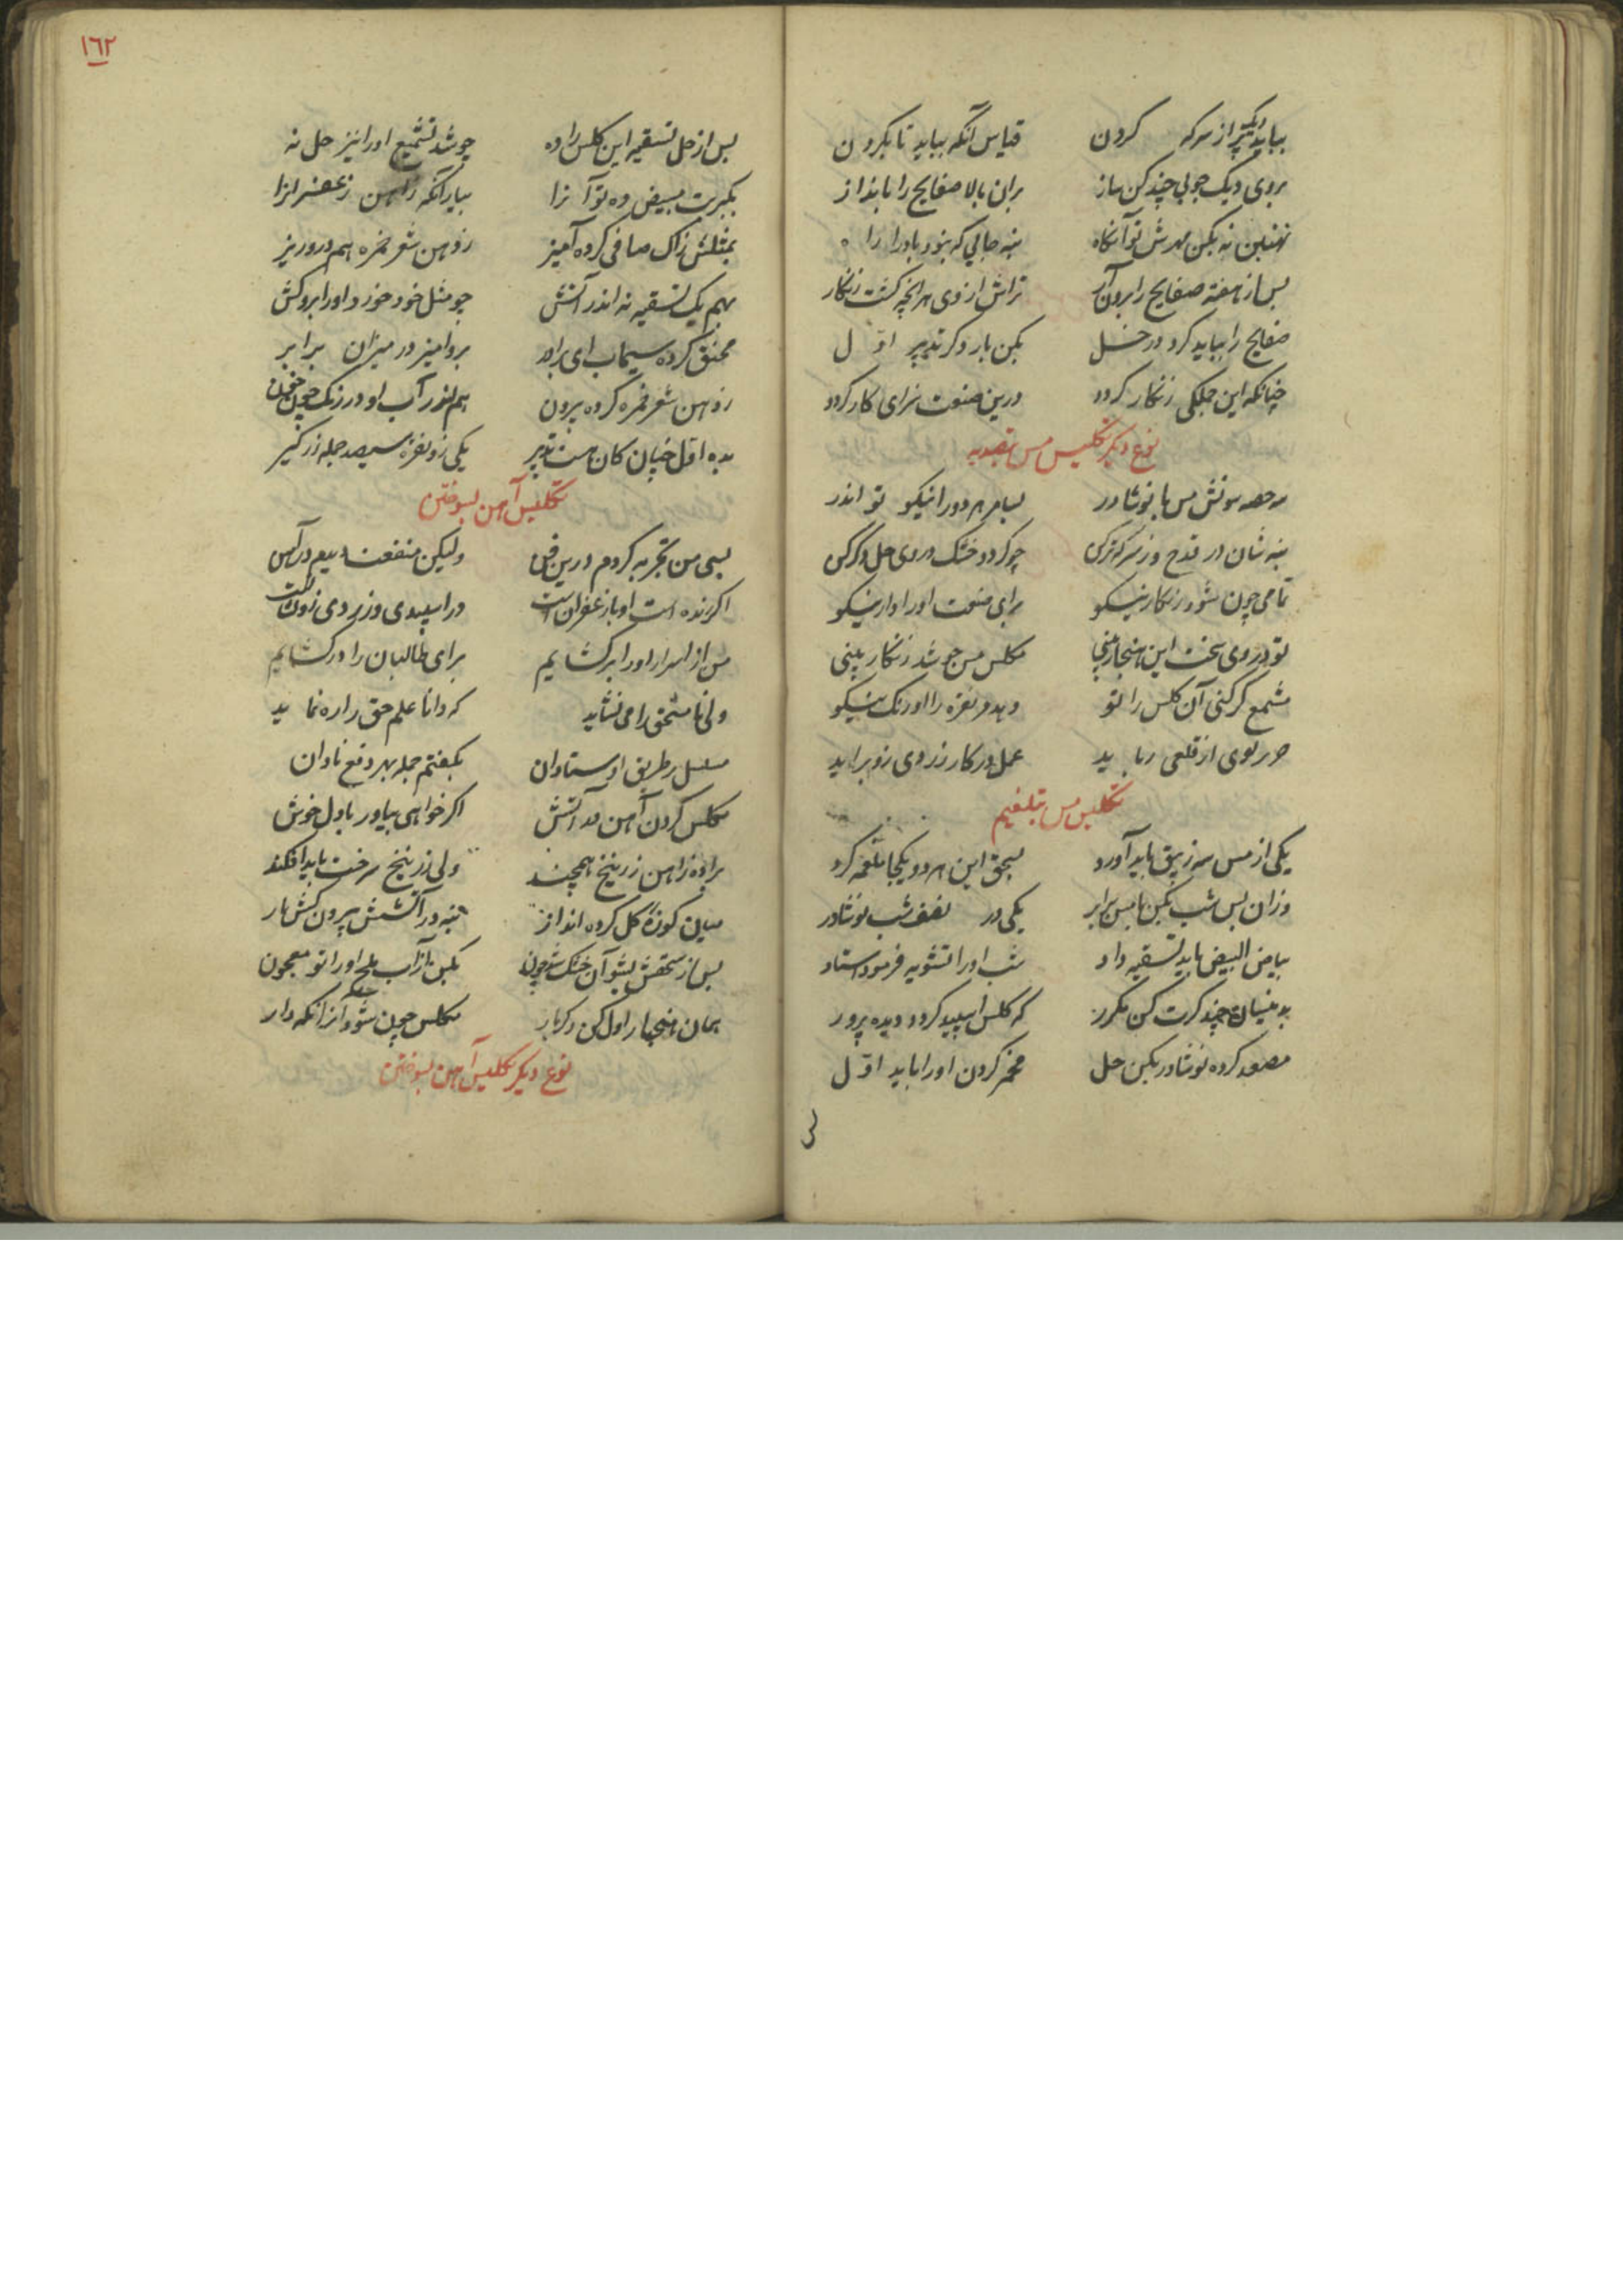 بباید دیک پر از سرکه کردن قیاس آنکه بباید تا بکردن
بروی دیک چوبی چند کن ساز بران بالا صفایح را بانداز
نهنبن نه بکن مهرش تو آنکاه بنه جایی که نبود باد را راه
پس از هفته صفایح را برون آر تراش از وی هر انچه کشت زنکار
صفایح را بباید کرد در خل بکن بار دکر تدبیر اول
چنانکه این جملکی زنکار کردد درین صنعت ترا این کار کردد
نوع دیکر تکلیس مس بتصدیه
سه حصه سونش مس با نوشادر بسا هر دو را نیکو تو اندر
بنه شان در قدح وز سرکه تر کن چو کردد خشک در وی خل دکر کن
تمامی چون شود زنکار نیکو برای صنعت او را دار نیکو
تو در وی سخت این هنجار بینی مکلس مس چو شد زنکار بینی
مشمع کر کنی آن کلس را تو دهد مر نقره را او رنک نیکو
بوی از قلعی رباید عمل در کار زر وی زو براید
تکلیس مس بتلغیم
یکی از مس سه زیبق باید آورد بسحق این هر دو یکجا ملغمه کرد
وزان پس شب بکن با مس برابر یکی در نصف شب نوشادر
بیاض البیض باید تسقیه داد شب او را تشویه فرمود استاد
بدینسان چند کرت کن مکرر که کلس اسپید کردد دیده پرور
مصعد کرده نوشادر بکن حل مخمر کردن او را باید اول
١٦٢
پس از حل تسقیه این کلس را ده چو شد تشمیع او را نیز حل نه
بکبریت مبیض ده تو آنرا بیار آنکه ز آهن زعفرانرا
بمثلش زاک صافی کرده آمیز ز دهن شعر خمره هم درو ریز
بهم یک تسقیه نه اندر آتش چو مثل خود خورد او را برو کش
مخنق کرده سیماب ای برادر برو آمیز در میزان برابر
ز دهن شعر خمره کرده بیرون هم اندر آب او در رنک چون خون
بده اول چنان کان هست تدبیر یکی زو نقره سیصد جمله زر کیر
تکلیس آهن بسوختن
بسی من تجربه کردم درین فن ولیکن منفعت دیدم در آهن
اکر زنده است او یا زعفرانست در اسپیدی و زردی زو نشانست
من از اسرار او را برکشایم برای طالبان را در کشایم
ولی نا مستحق را می نشاید که دانا علم حق را ره نماید
مسلسل بر طریق اوستادان بکفتم جمله بهر دفع نادان
مکلس کردن آهن در آتش اکر خواهی بیاور با دل خوش
براده ز آهن زرنیخ همچند ولی زرنیخ سرخت باید افکند
میان کوزهٔ کل کرده انداز بنه در آتشش بیرون کش باز
پس از سحقش بشو آن خشک شد چون بکن باز آب ملح او را تو معجون
همان هنجار اول کن دکر بار مکلس چون شود آنرا نکه دار
نوع دیکر تکلیس آهن بسوختن